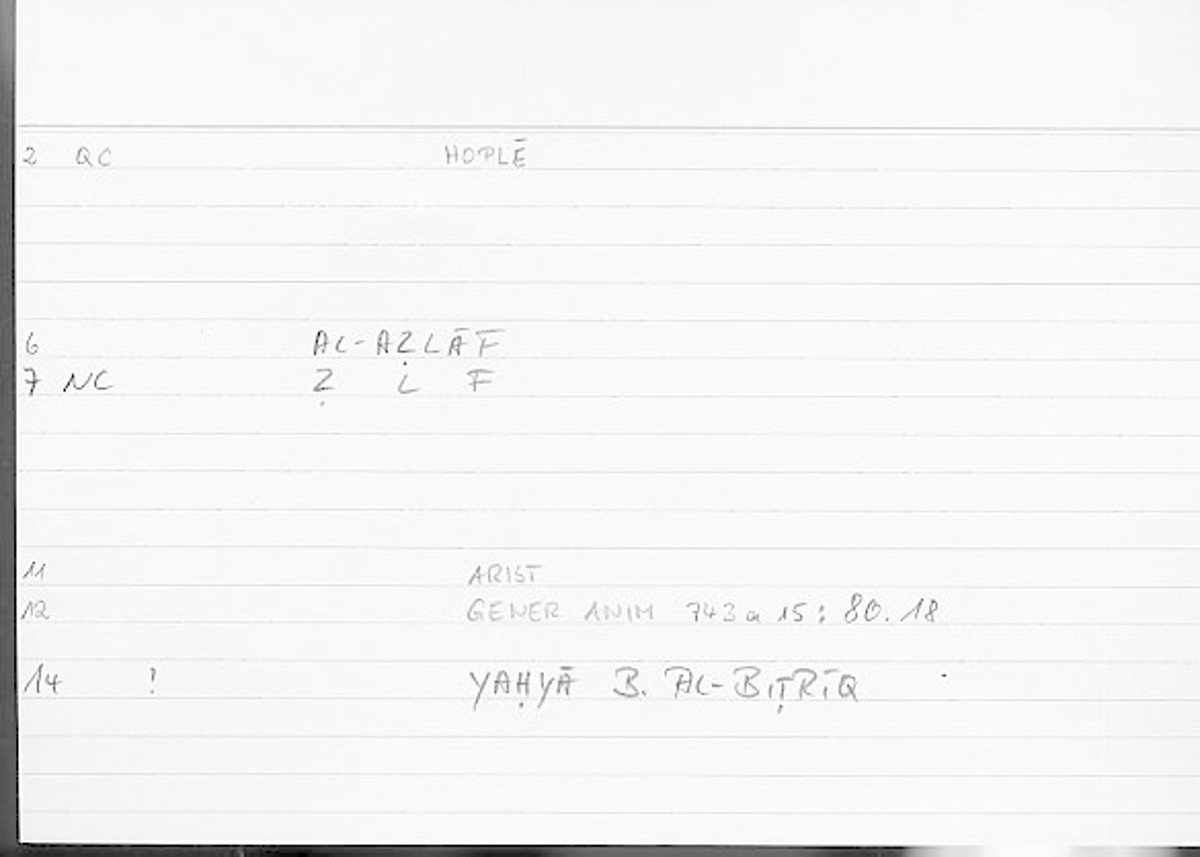 2 QC HOPLĒ
6 AL-AẒLĀF
7 NC Ẓ L F
11 ARIST
12 GENER ANIM 743 a 15 : 80. 18
14 ? YAḤYĀ B. AL-BIṬRĪQ